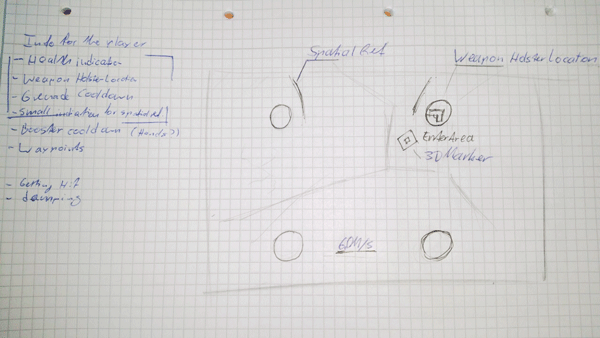 Info for the player
- Health indicator
- Weapon Holster Location
- Grenade Cooldown
- Small indication for spatial ref
- Booster cooldown (Hands)
- Waypoints
- Getting Hit
- damping
Spatial Ref
Weapon Holster Location
EnterArea
3D Marker
60M/s